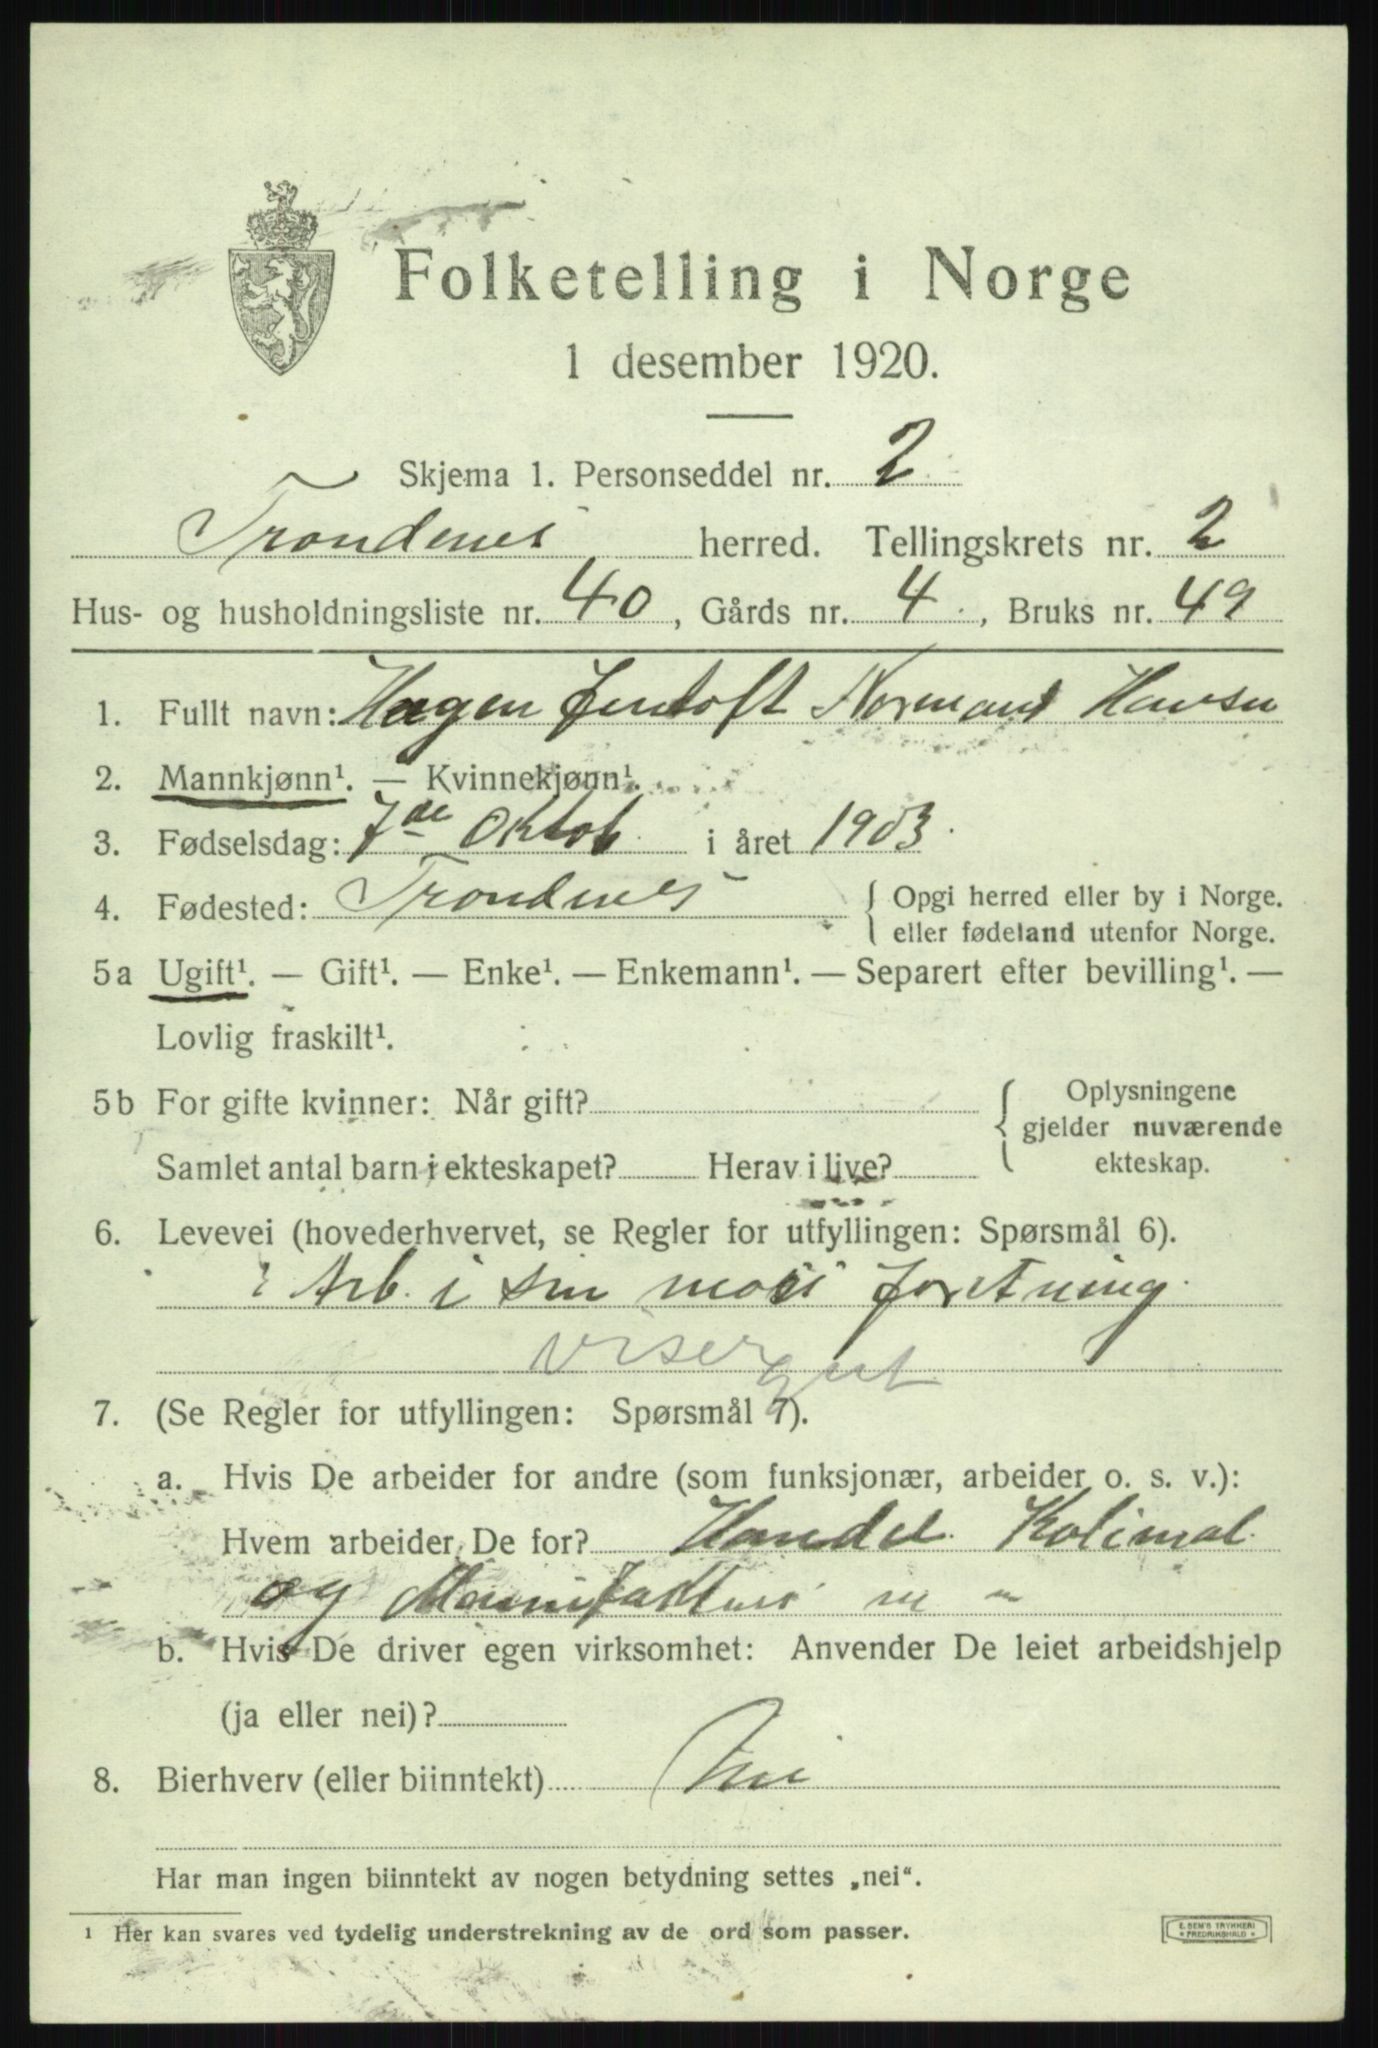 Folketelling i Norge
1 desember 1920.
Skjema 1. Personseddel nr. 2
Trondenes herred. Tellingskrets nr. 2
Hus- og husholdningsliste nr. 40, Gårds nr. 4, Bruks nr. 49
1. Fullt navn: Hagen Jentoft Normann Hansen
2. Mannkjønn¹. — Kvinnekjønn¹.
3. Fødselsdag: 7de Oktob i året 1903.
4. Fødested: Trondenes { Opgi herred eller by i Norge.
eller fødeland utenfor Norge.
5a Ugift¹. — Gift¹. — Enke¹. — Enkemann¹. — Separert efter bevilling¹. —
Lovlig fraskilt¹.
5b For gifte kvinner: Når gift? { Oplysningene
gjelder nuværende
Samlet antal barn i ekteskapet? Herav i live? ekteskap.
6. Levevei (hovederhvervet, se Regler for utfyllingen: Spørsmål 6).
Arb. i sin mors forretning.
visergut
7. (Se Regler for utfyllingen: Spørsmål 7).
a. Hvis De arbeider for andre (som funksjonær, arbeider o. s. v.):
Hvem arbeider De for? Handel. Kolimal.
og Manufaktur
b. Hvis De driver egen virksomhet: Anvender De leiet arbeidshjelp
(ja eller nei)?
8. Bierhverv (eller biinntekt) Nei
Har man ingen biinntekt av nogen betydning settes „nei“.
¹ Her kan svares ved tydelig understrekning av de ord som passer.
E. SEM'S TRYKKERI
FREDRIKSHALD